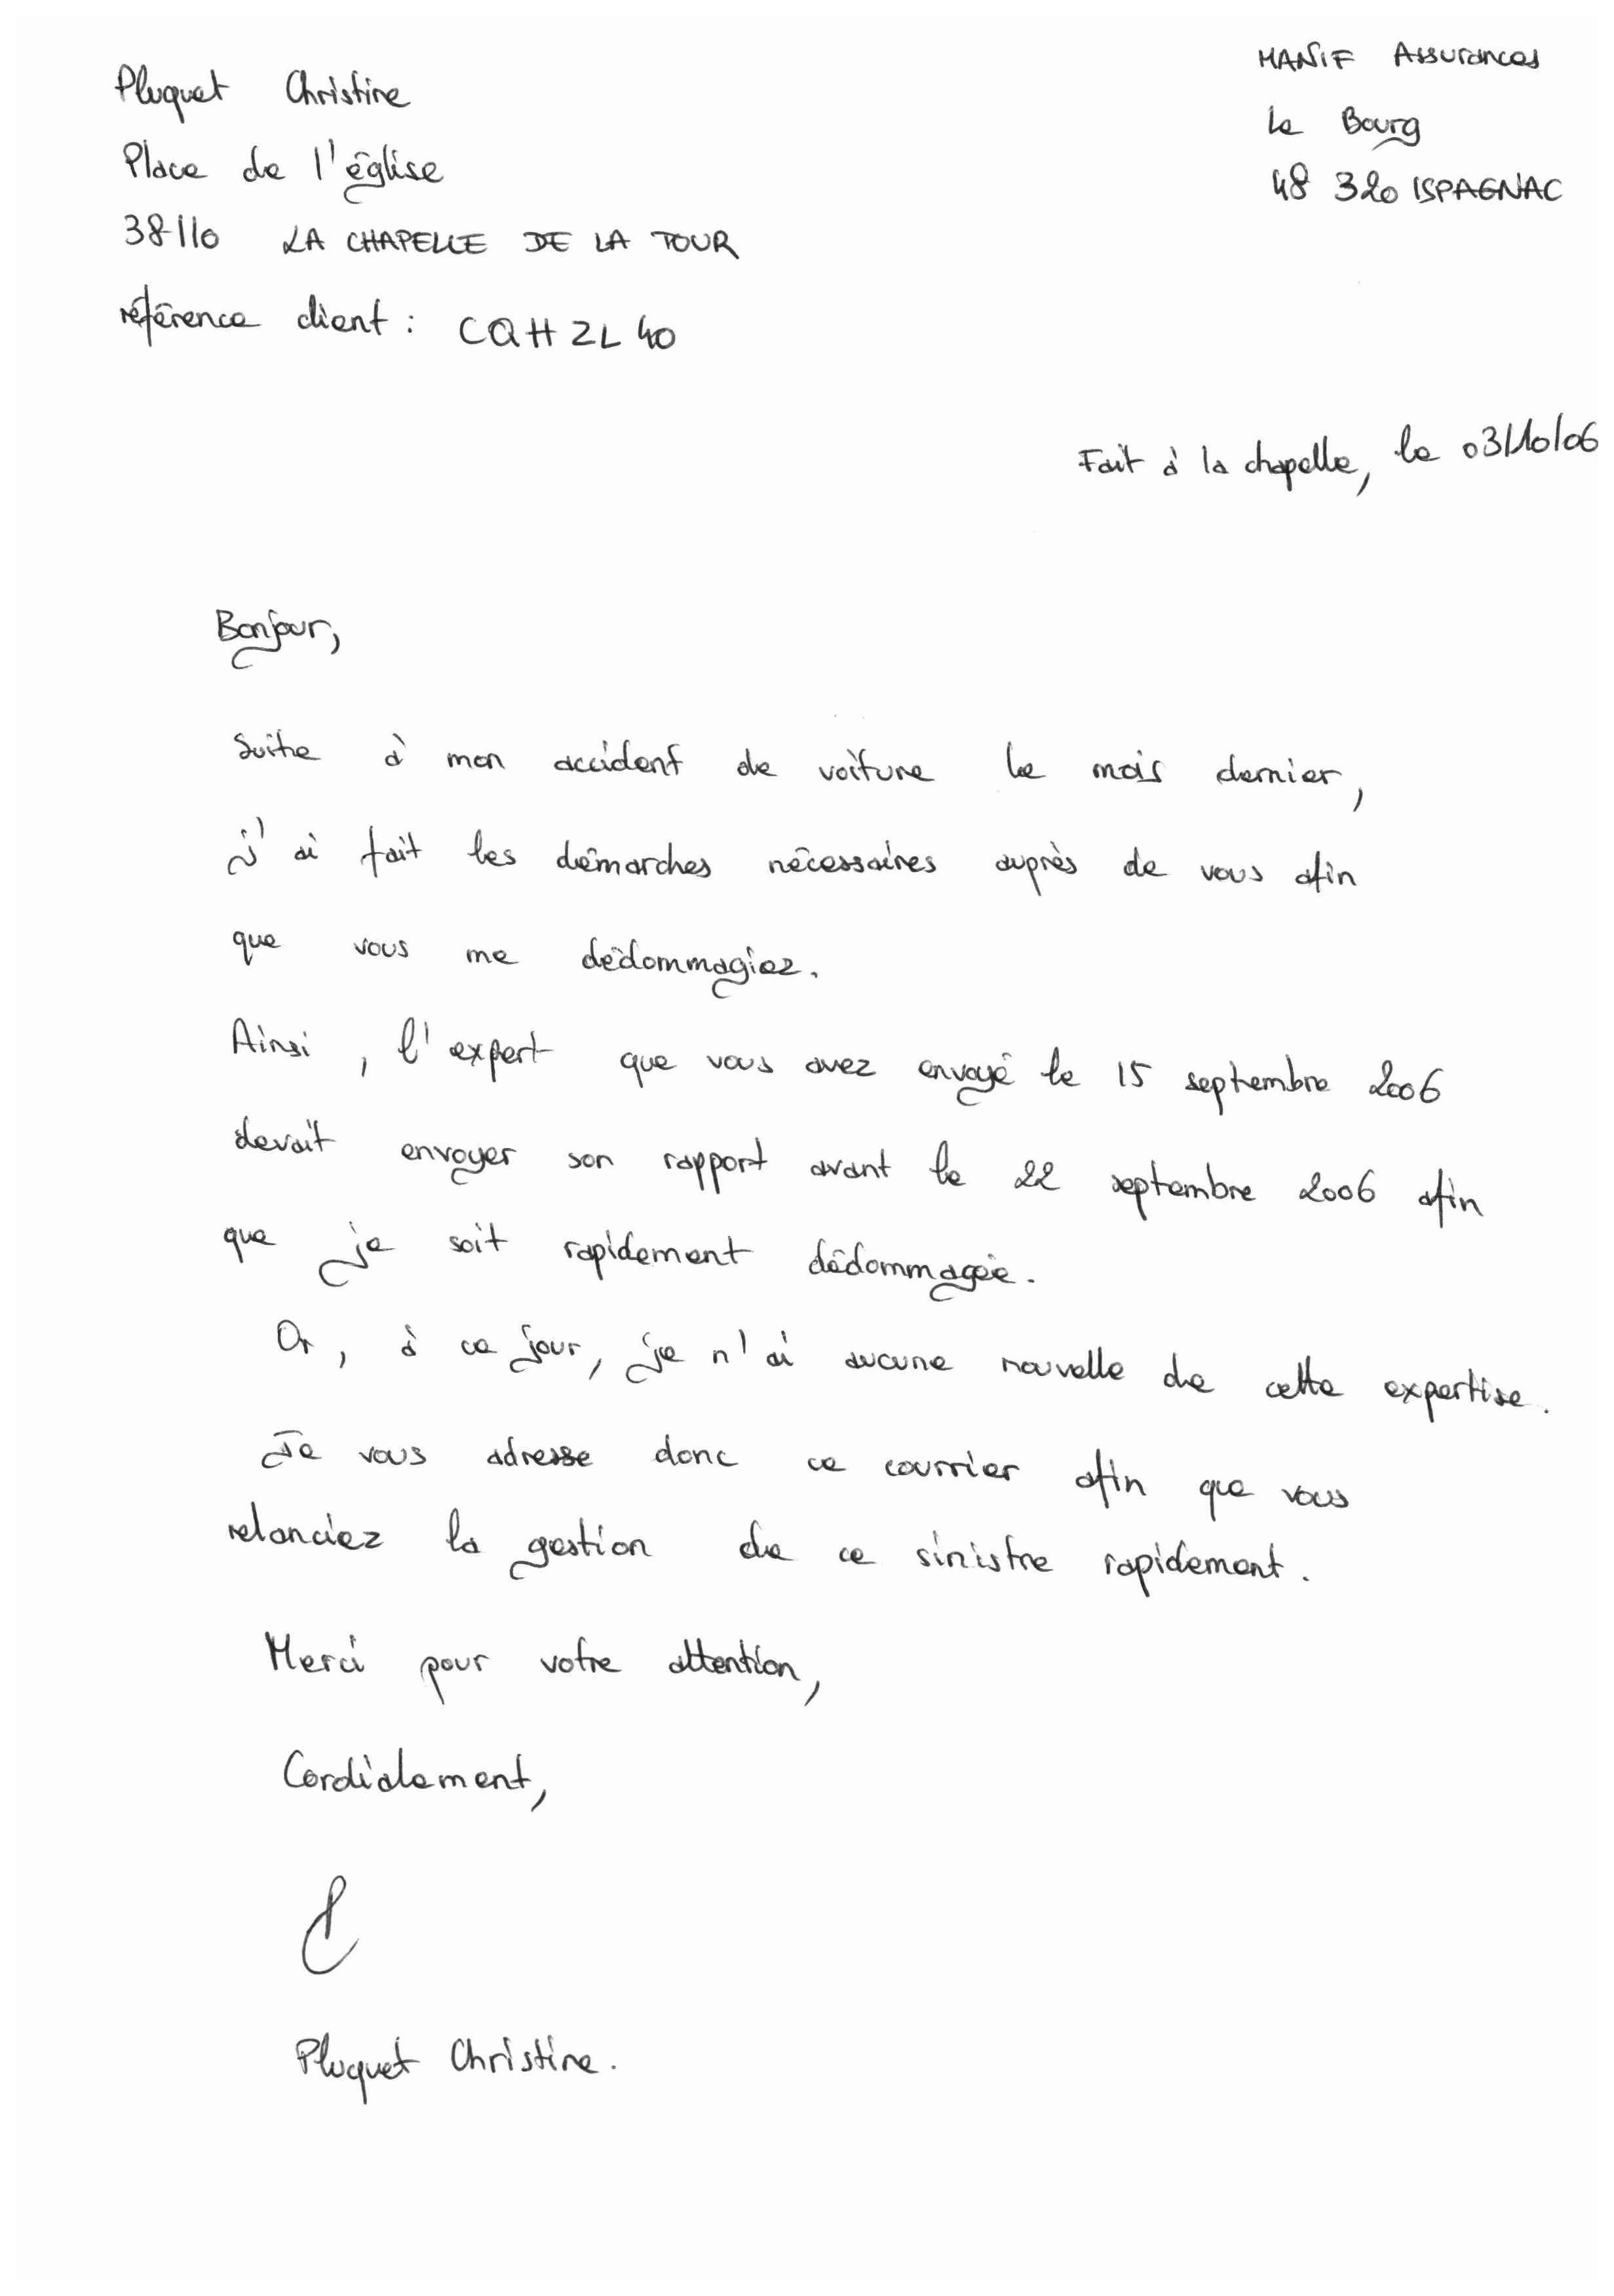 Pluquet Christine
Place de l'église
38110 LA CHAPELLE DE LA TOUR
référence client : CQHZL40
MANIF Assurances
Le Bourg
48 320 ISPAGNAC
Fait à la chapelle, le 03/10/06
Bonjour,
Suite à mon accident de voiture le mois dernier,
j'ai fait les démarches nécessaires auprès de vous afin
que vous me dédommagiez.
Ainsi, l'expert que vous avez envoyé le 15 septembre 2006
devait envoyer son rapport avant le 22 septembre 2006 afin
que je soit rapidement dédommagée.
Or, à ce jour, je n'ai aucune nouvelle de cette expertise.
Je vous adresse donc ce courrier afin que vous
relanciez la gestion de ce sinistre rapidement.
Merci pour votre attention,
Cordialement,
Pluquet Christine.